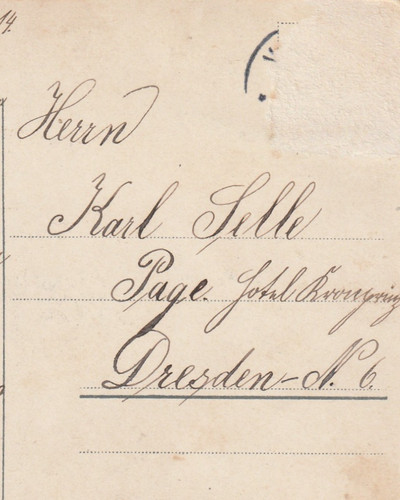 14.
Herrn
Karl Selle
Page. Hotel Kronprinz
Dresden-N. 6.